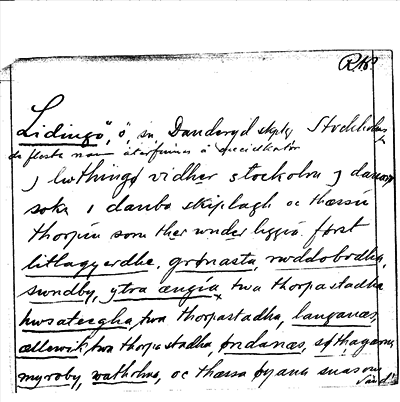 RA?
Lidingö, ö, sn Danderyd skply Stockholms
de flesta namn återfinnas å specialkartor
J liwthingø vidher stockolm J danarø
sokn i danbo skiplagh oc thæssin
thorpin som ther under liggia. først
litlagyærdhe. grønasta, roddobodha,
sundby, ytra ængia, twa thorpastadha
husatergha, twa thorpastadha, langanæs,
ællewik twa thorpastadha, øndanæs, s thagarn
myroby, watholma, oc thæssa øyana suasom
Sand